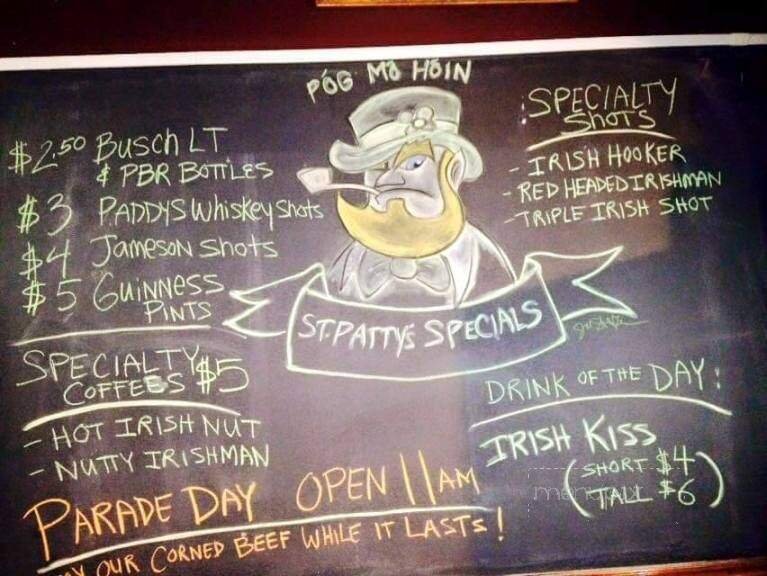 PÓG MO HÓIN
$2.50 BUSCH LT
& PBR BOTTLES
$3 PADDYS Whiskey Shots
$4 JAMESON Shots
$5 GUINNESS
PINTS
SPECIALTY $5
COFFEES
- HOT IRISH NUT
- NUTTY IRISHMAN
ST. PATTY'S SPECIALS
SPECIALTY
SHOTS
- IRISH HOOKER
- RED HEADED IRISHMAN
- TRIPLE IRISH SHOT
DRINK OF THE DAY:
IRISH KISS
(SHORT $4
TALL $6)
PARADE DAY OPEN 11AM
OUR CORNED BEEF WHILE IT LASTS!